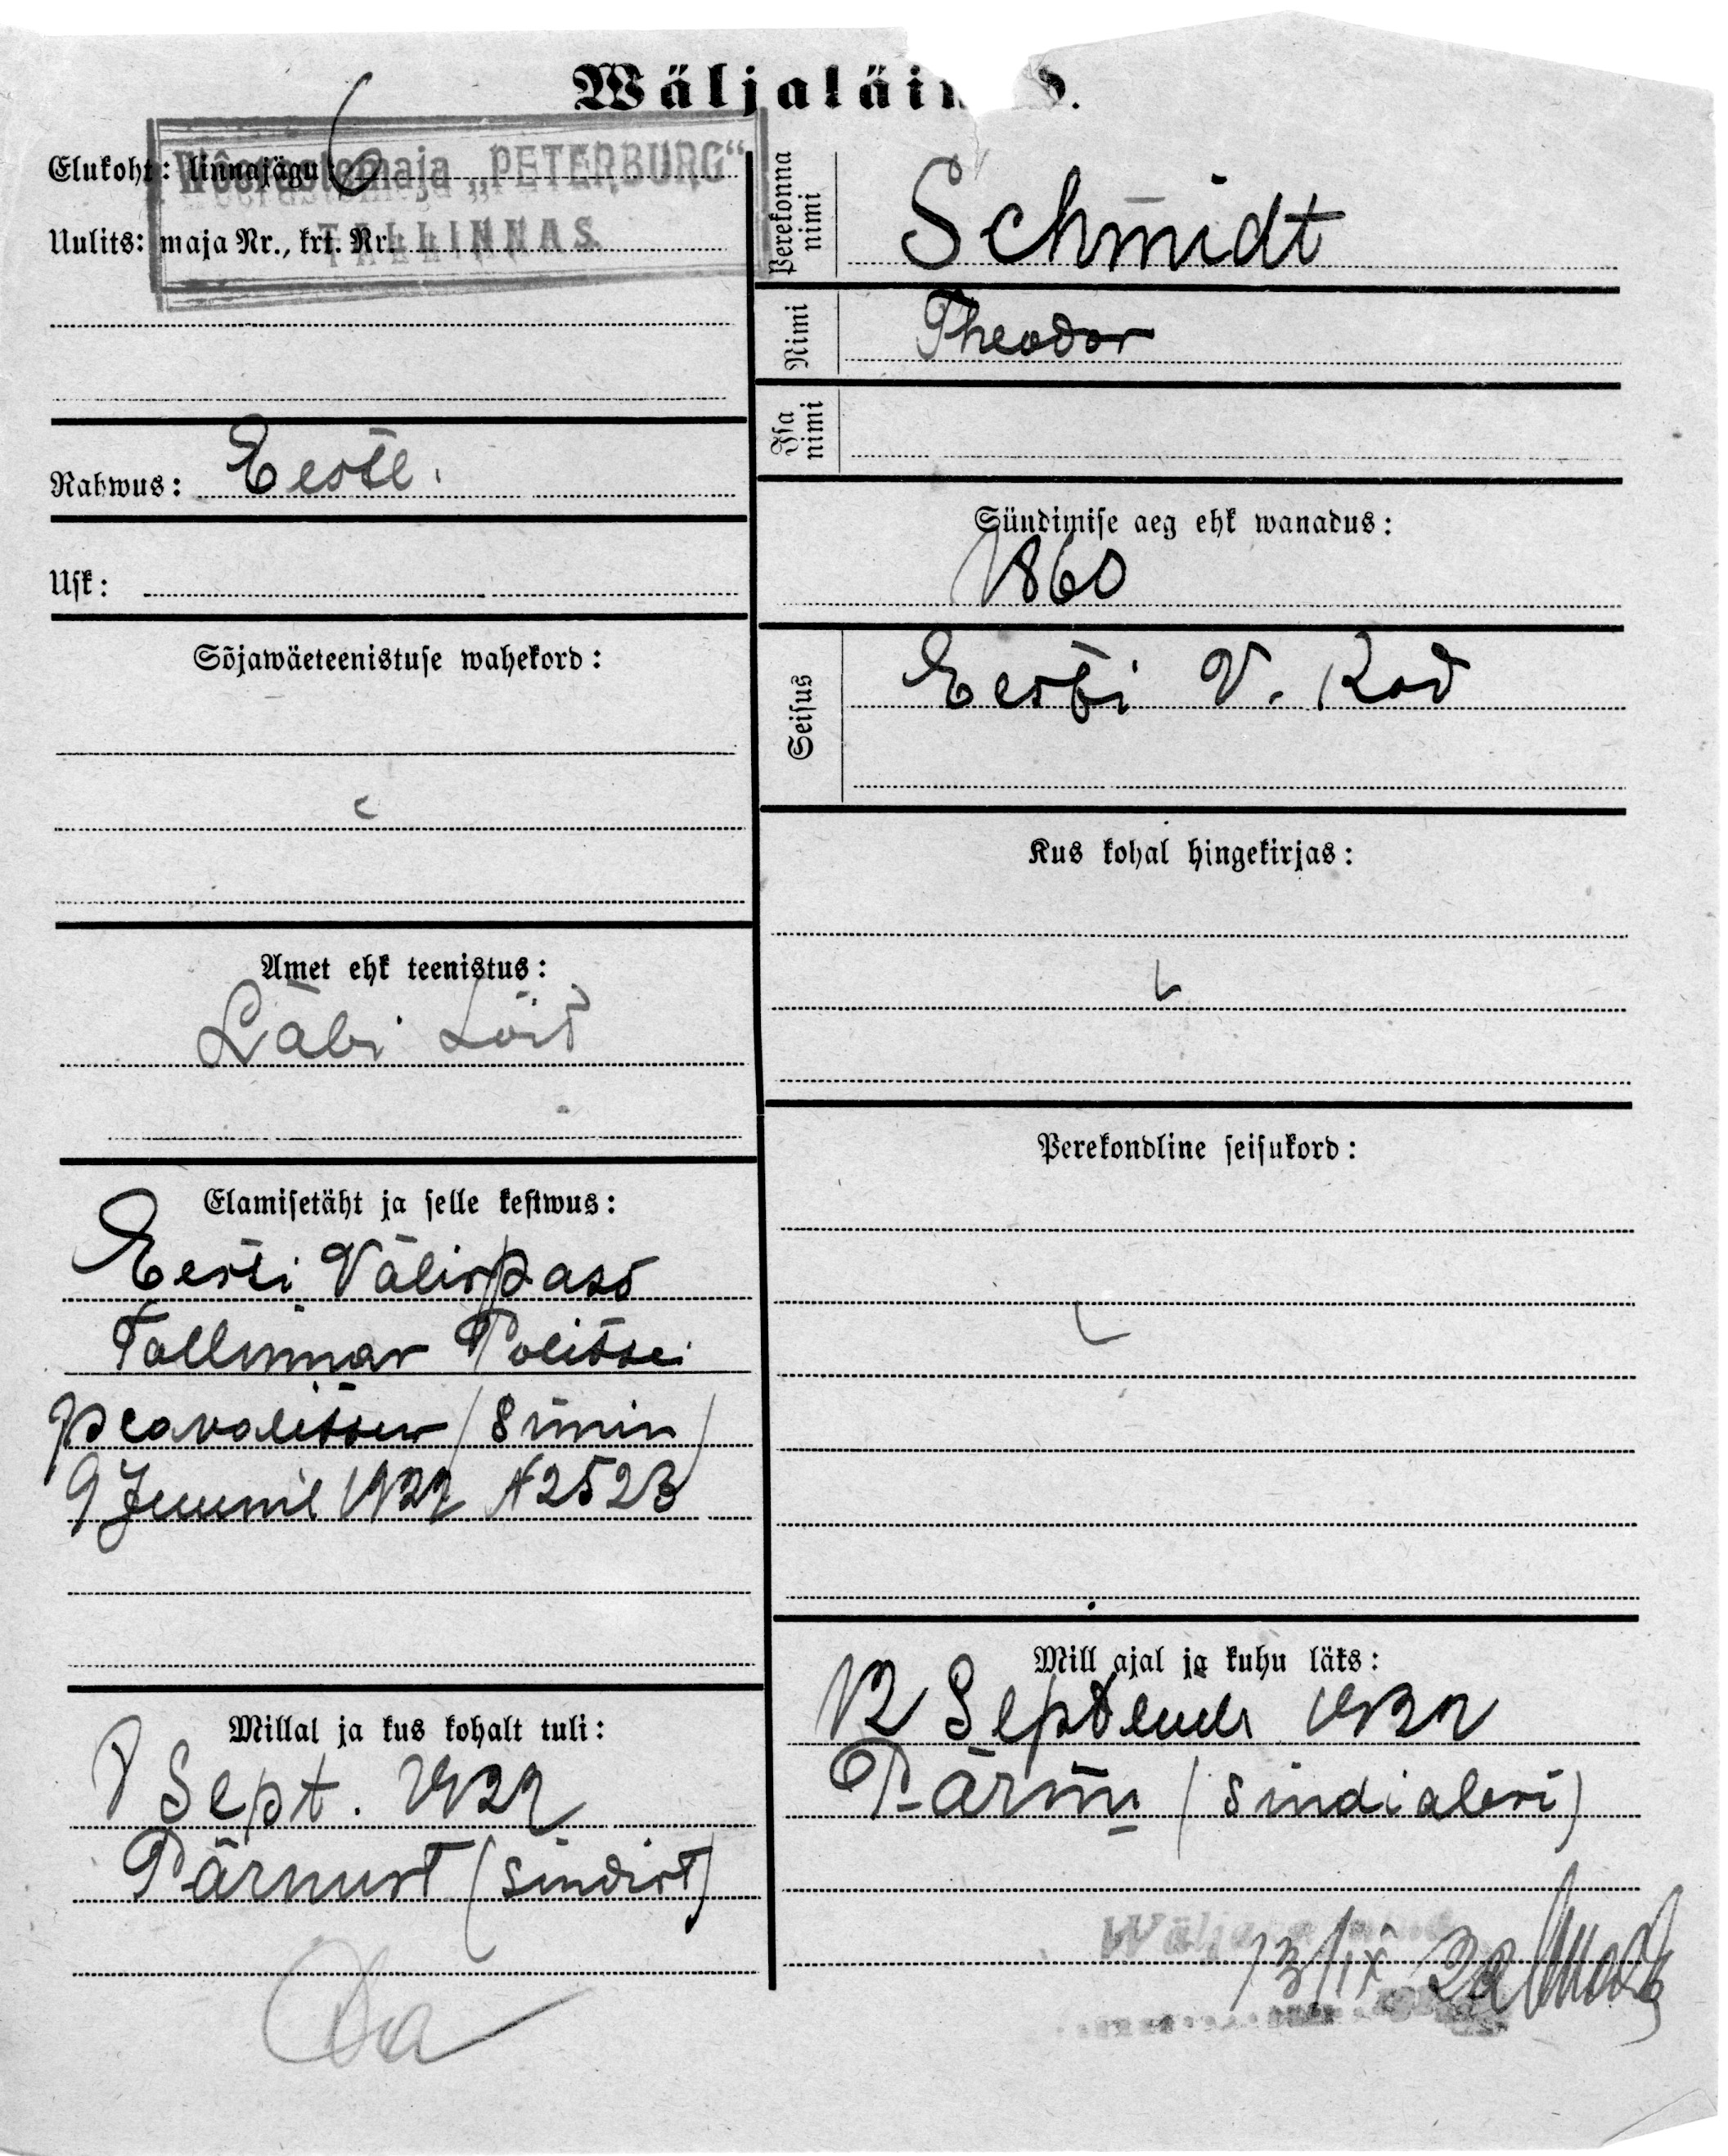 Wäljaläin
6
Wõerastemaja „PETERBURG"
TALLINNAS
Elukoht: linnajägu
Uulits: maja Nr., krt. Nr.
Rahwus: Eesti.
Usk:
Sõjawäeteenistuse wahekord:
Amet ehk teenistus:
Läbi Sõit
Elamisetäht ja selle kestwus:
Eesti Välispass
Tallinnas Politsei
peavalitsus
9 Juunil 1922 N 2523
Millal ja kus kohalt tuli:
Sept. 1922
Pärnust (Sindist)
Perekonna nimi
Schmidt
Nimi
Theodor
Isa nimi
Sündimise aeg ehk wanadus:
1860
Seisus
Eesti V. Kod
Kus kohal hingekirjas:
Perekondline seisukord:
Mill ajal ja kuhu läks:
12 Septemb 1922
Pärnu (Sindi alevi)
13/IX 22